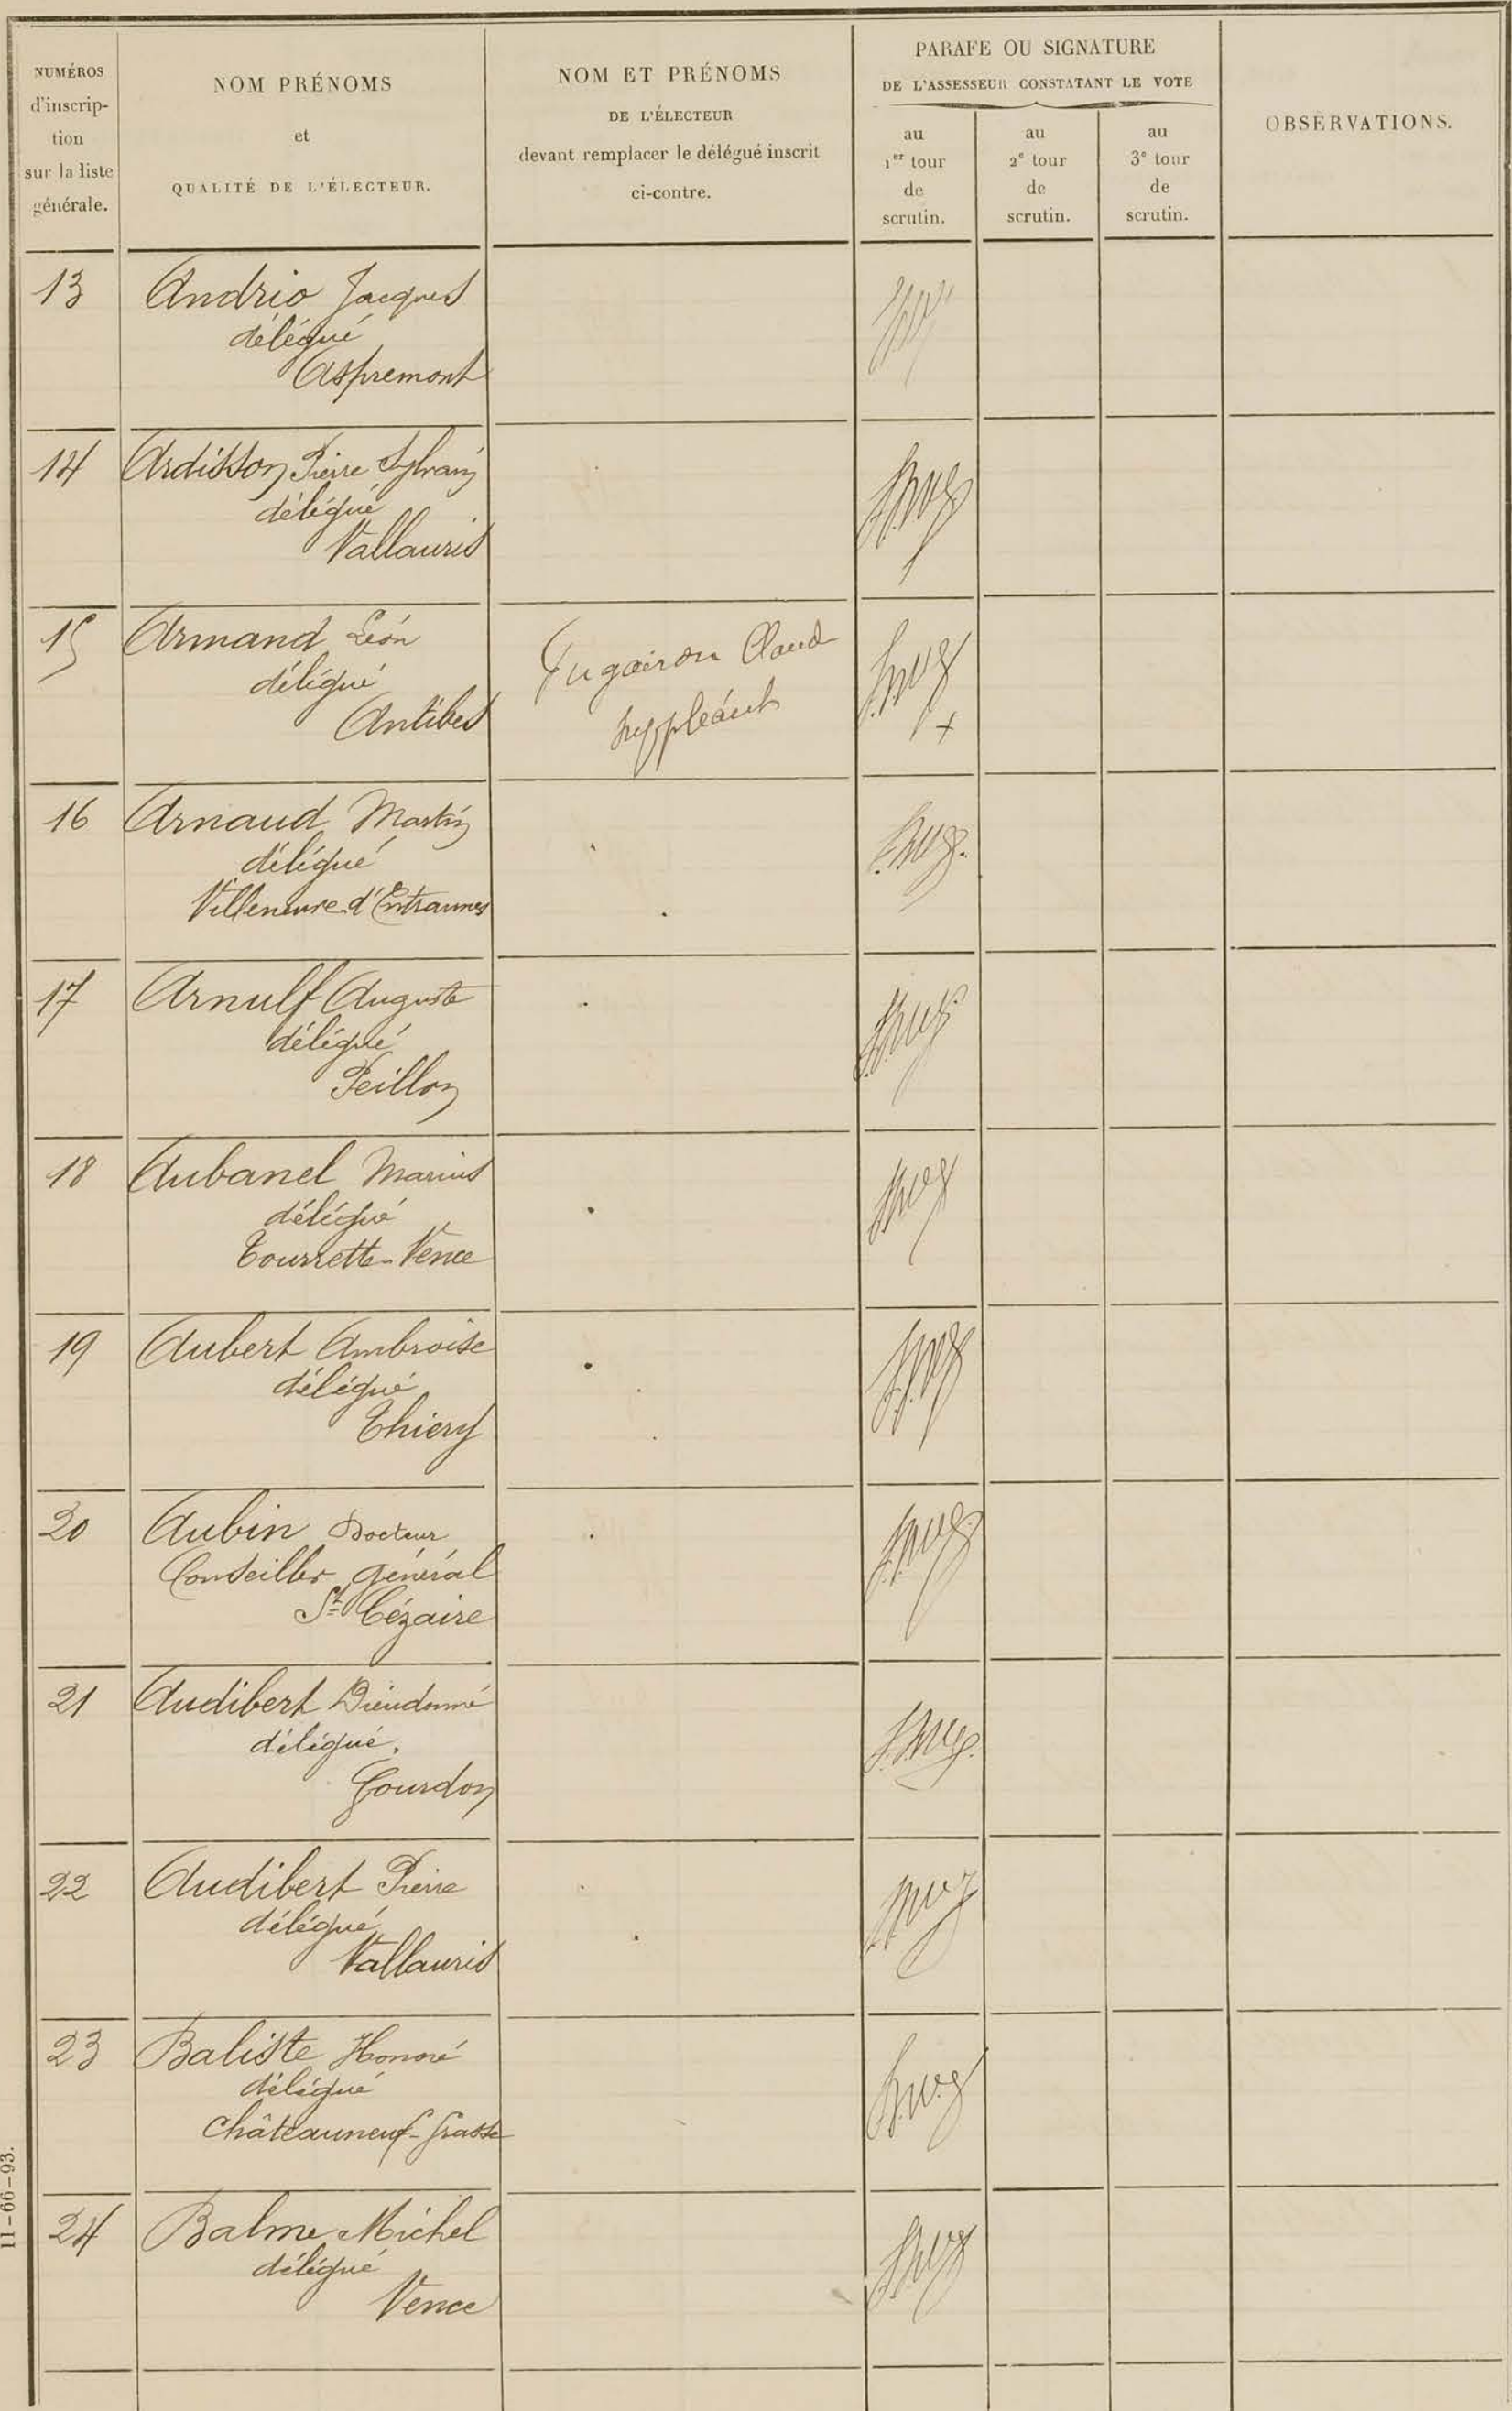 NUMÉROS
d'inscrip-
tion
sur la liste
générale.
NOM PRÉNOMS
et
QUALITÉ DE L'ÉLECTEUR.
NOM ET PRÉNOMS
DE L'ÉLECTEUR
devant remplacer le délégué inscrit
ci-contre.
PARAFE OU SIGNATURE
DE L'ASSESSEUR CONSTATANT LE VOTE
au
1er tour
de
scrutin.
au
2e tour
de
scrutin.
au
3e tour
de
scrutin.
OBSERVATIONS.
13 Andrio Jacques
délégué
Aspremont
14 Ardisson Pierre Sylvain
délégué
Vallauris
15 Armand Léon
délégué
Antibes
Fugairon Claud
suppléant
+
16 Arnaud Martin
délégué
Villeneuve d'Entraunes
17 Arnulf Auguste
délégué
Peillon
18 Aubanel Marius
délégué
Tourrette-Vence
19 Aubert Ambroise
délégué
Thiery
20 Aubin Docteur
Conseiller général
St Cézaire
21 Audibert Dieudonné
délégué,
Gourdon
22 Audibert Pierre
délégué
Vallauris
23 Baliste Honoré
délégué
Châteauneuf-Grasse
24 Balme Michel
délégué
Vence
11-66-93.